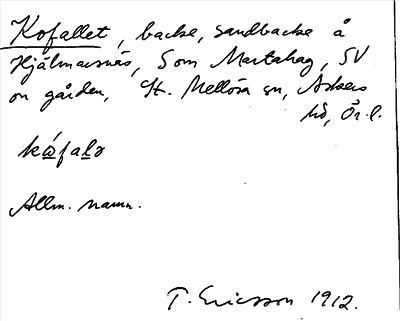 Kofallet, backe, sandbacke å
Hjälmarsnäs, Som Martahag, SV
om gården, St. Mellösa sn, Askers
hd, Ör. l.
kǻfalə
Allm. namn.
T. Ericsson 1912.